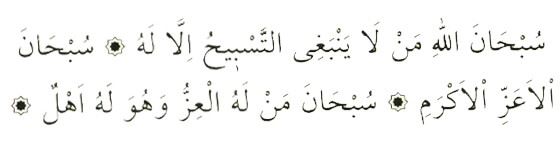 سُبْحَانَ اللّٰهِ مَنْ لَا يَنْبَغِى التَّسْبِيحُ اِلَّا لَهُ ۞ سُبْحَانَ
اْلاَعَزِّ اْلاَكْرَمِ ۞ سُبْحَانَ مَنْ لَهُ الْعِزُّ وَهُوَ لَهُ اَهْلٌ ۞